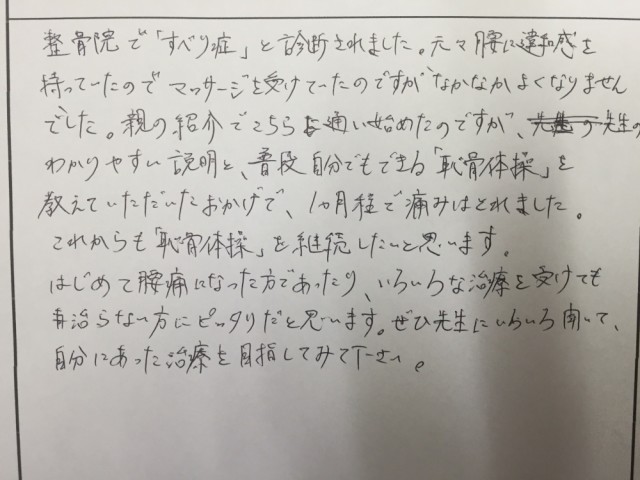 整骨院で「すべり症」と診断されました。元々腰に違和感を
持っていたのでマッサージを受けていたのですがなかなかよくなりません
でした。親の紹介でこちらに通い始めたのですが、先生の
わかりやすい説明と、普段自分でもできる「恥骨体操」を
教えていただいたおかげで、1ヵ月程で痛みはとれました。
これからも「恥骨体操」を継続したいと思います。
はじめて腰痛になった方であったり、いろいろな治療を受けても
治らない方にピッタリだと思います。ぜひ先生にいろいろ聞いて、
自分にあった治療を目指してみて下さい。